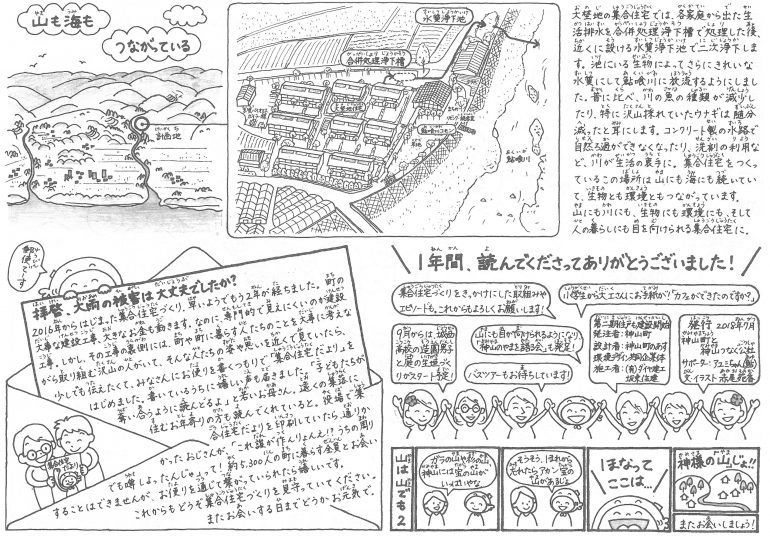 山も海も
つながっている
計画地
水質浄化池
合併処理浄化槽
鮎喰川
大埜地の集合住宅では、各家庭から出た生
活排水を合併処理浄化槽で処理した後、
近くに設ける水質浄化池で二次浄化しま
す。池にいる生物によってさらにきれいな
水質にして鮎喰川に放流するようにしまし
た。昔に比べ、川の魚の種類が減少し
たり、特に沢山採れていたウナギは随分
減ったと耳にします。コンクリート製の水路で
自然ろ過ができなくなったり、洗剤の利用な
ど、川が生活の裏手に。集合住宅をつくっ
ているこの場所は山にも海にも続いてい
て、生物とも環境ともつながっています。
山にも川にも、生物にも環境にも、そして
人の暮らしにも目を向けられる集合住宅に。
拝啓、大雨の被害は大丈夫でしたか?
2016年からはじまった集合住宅づくり、早いようでもう2年が経ちました。町の
大事な建設工事、大きなお金も動きます。なのに、専門的で見えにくいのが建設
工事。しかし、その工事の裏側には、町や町に暮らす人たちのことを大事に考え
ながら取り組む沢山の人がいて、そんな人たちの姿や思いを近くで見ていたら、
少しでも伝えたくて、みなさんにお便りを書くつもりで「集合住宅だより」を
はじめました。書いているうちに嬉しい声も届きました。「子どもたちが
奪い合うように読んどるよ」と若いお母さん。遠くの巣箱に
住むお年寄りの方も読んでくれていると。役場で集
合住宅だよりを印刷していたら、通りか
かったおじさんが、「これ誰が作りよんえ!?うちの周り
でも噂しよったんじょ」って!約5,300人の町に暮らす全員とお会い
することはできませんが、お便りを通じて繋がっていられたら嬉しいです。
これからもどうぞ集合住宅づくりを見守っていてください。
またお会いする日までどうかお元気で。
1年間、読んでくださってありがとうございました!
集合住宅づくりをきっかけにした取組みや
エピソードも、これからもよろしくお願いします!
小学生から大工さんにお手紙が!「カフェができたのですか?」
9月からは城西
高校の造園男子
と庭の生垣づく
りがスタート予定!
山にも目が向けられるようになり
「神山のやまを語る会」も発足!
バスツアーもお待ちしています!
第二期住戸も建設開始
発注者:神山町
設計者:神山町のあす
環境デザイン共同企業体
施工者:(有)ダイ建工
発行 2018年7月
神山町と
神山つなぐ公社
山は山でも2
ガラの山や杉の山
神山には宝の山が
いっぱいやな
そうそう、ほれから
そうれたらアカン宝の
山があるじょ
ほなって
ここは…
神様の山じょ!!
またお会いしましょう!